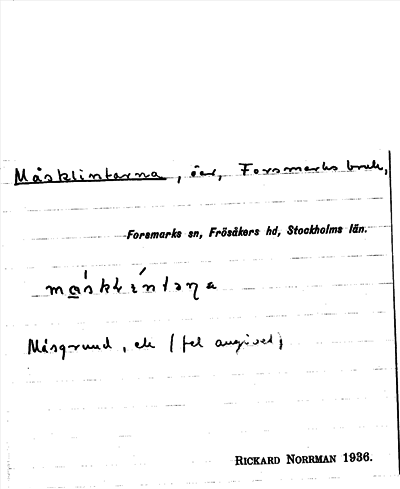 Måsklintarna, öar, Forsmarks bruk,
Forsmarks sn, Frösåkers hd, Stockholms län.
Måsgrund, ek (fel angivet)
RICKARD NORRMAN 1936.